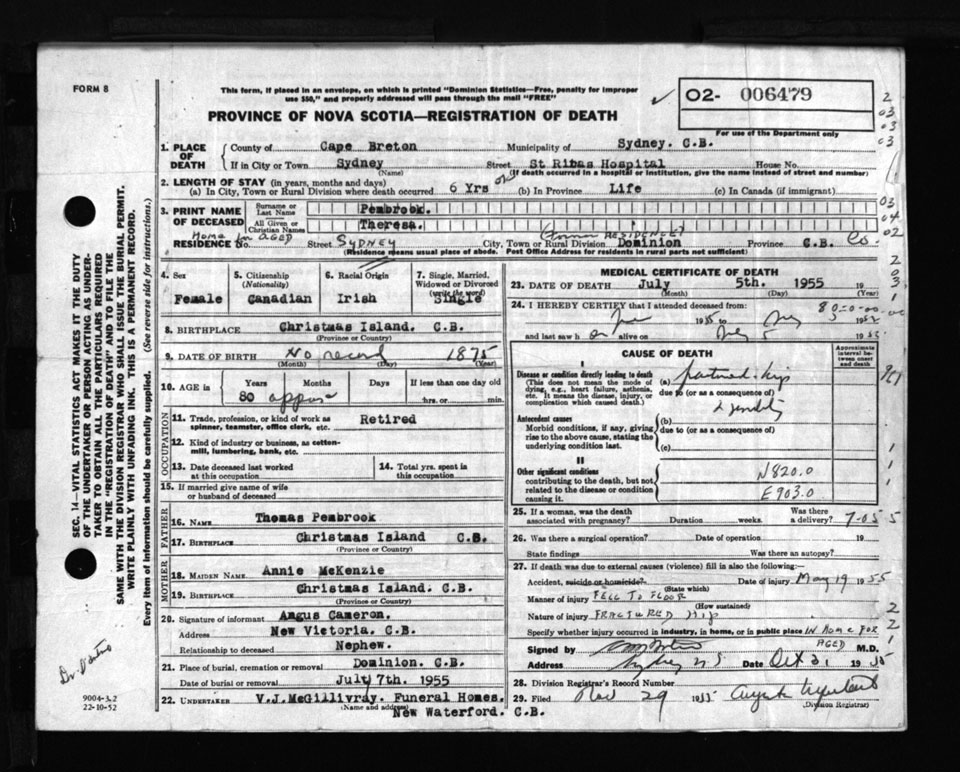 FORM 8
This form, if placed in an envelope, on which is printed "Dominion Statistics—Free, penalty for improper
use $50," and properly addressed will pass through the mail "FREE"
02- 006479
For use of the Department only
PROVINCE OF NOVA SCOTIA—REGISTRATION OF DEATH
1. PLACE OF DEATH
County of Cape Breton Municipality of Sydney. C.B.
If in City or Town Sydney Street St Ribas Hospital House No.
(Name) (If death occurred in a hospital or institution, give the name instead of street and number)
2. LENGTH OF STAY (in years, months and days)
(a) In City, Town or Rural Division where death occurred 6 Yrs (b) In Province Life (c) In Canada (if immigrant)
3. PRINT NAME OF DECEASED
Surname or Last Name Pembrook.
All Given or Christian Names Theresa.
Home for AGED (Former RESIDENCE)
RESIDENCE No. Street SYDNEY City, Town or Rural Division Dominion Province C.B. Co.
(Residence means usual place of abode. Post Office Address for residents in rural parts not sufficient)
4. Sex
Female
5. Citizenship (Nationality)
Canadian
6. Racial Origin
Irish
7. Single, Married, Widowed or Divorced (write the word)
Single
8. BIRTHPLACE Christmas Island. C.B.
(Province or Country)
9. DATE OF BIRTH No record 1875
(Month) (Day) (Year)
10. AGE in Years Months Days If less than one day old
80 approx hrs. or min.
OCCUPATION
11. Trade, profession, or kind of work as spinner, teamster, office clerk, etc. Retired
12. Kind of industry or business, as cotton-mill, lumbering, bank, etc.
13. Date deceased last worked at this occupation
14. Total yrs. spent in this occupation
15. If married give name of wife or husband of deceased
FATHER
16. NAME Thomas Pembrook
17. BIRTHPLACE Christmas Island C.B.
(Province or Country)
MOTHER
18. MAIDEN NAME Annie McKenzie
19. BIRTHPLACE Christmas Island. C.B.
(Province or Country)
20. Signature of informant Angus Cameron.
Address New Victoria. C.B.
Relationship to deceased Nephew.
21. Place of burial, cremation or removal Dominion. C.B.
Date of burial or removal July 7th. 1955
22. UNDERTAKER V.J. McGillivray. Funeral Homes.
(Name and address)
New Waterford. C.B.
MEDICAL CERTIFICATE OF DEATH
23. DATE OF DEATH July 5th. 1955 19
(Month) (Day) (Year)
24. I HEREBY CERTIFY that I attended deceased from:
June 1955
and last saw h alive on July 5 1955
CAUSE OF DEATH
Approximate interval between onset and death
I
Disease or condition directly leading to death (a)
(This does not mean the mode of dying, e.g., heart failure, asthenia, etc. It means the disease, injury, or complication which caused death.)
due to (or as a consequence of)
Antecedent causes (b)
Morbid conditions, if any, giving rise to the above cause, stating the underlying condition last.
due to (or as a consequence of)
(c)
II
Other significant conditions
contributing to the death, but not related to the disease or condition causing it.
N820.0
E903.0
25. If a woman, was the death associated with pregnancy? Duration weeks. Was there a delivery? 7-05 5
26. Was there a surgical operation? Date of operation 19
State findings Was there an autopsy?
27. If death was due to external causes (violence) fill in also the following:—
Accident, suicide or homicide? Date of injury May 19 1955
(State which)
Manner of injury FELL TO FLOOR
(How sustained)
Nature of injury FRACTURED Hip
Specify whether injury occurred in industry, in home, or in public place IN HOME FOR AGED
Signed by M.D.
Address Sydney N.S. Date Oct 31 1955
28. Division Registrar's Record Number
29. Filed Nov 29 1955
(Division Registrar)
SEC. 14—VITAL STATISTICS ACT MAKES IT THE DUTY
OF THE UNDERTAKER OR PERSON ACTING AS UNDER-
TAKER TO OBTAIN ALL THE PARTICULARS REQUIRED
IN THE "REGISTRATION OF DEATH" AND TO FILE THE
SAME WITH THE DIVISION REGISTRAR WHO SHALL ISSUE THE BURIAL PERMIT.
WRITE PLAINLY WITH UNFADING INK. THIS IS A PERMANENT RECORD.
Every item of information should be carefully supplied. (See reverse side for instructions.)
9004-3.2
22-10-52